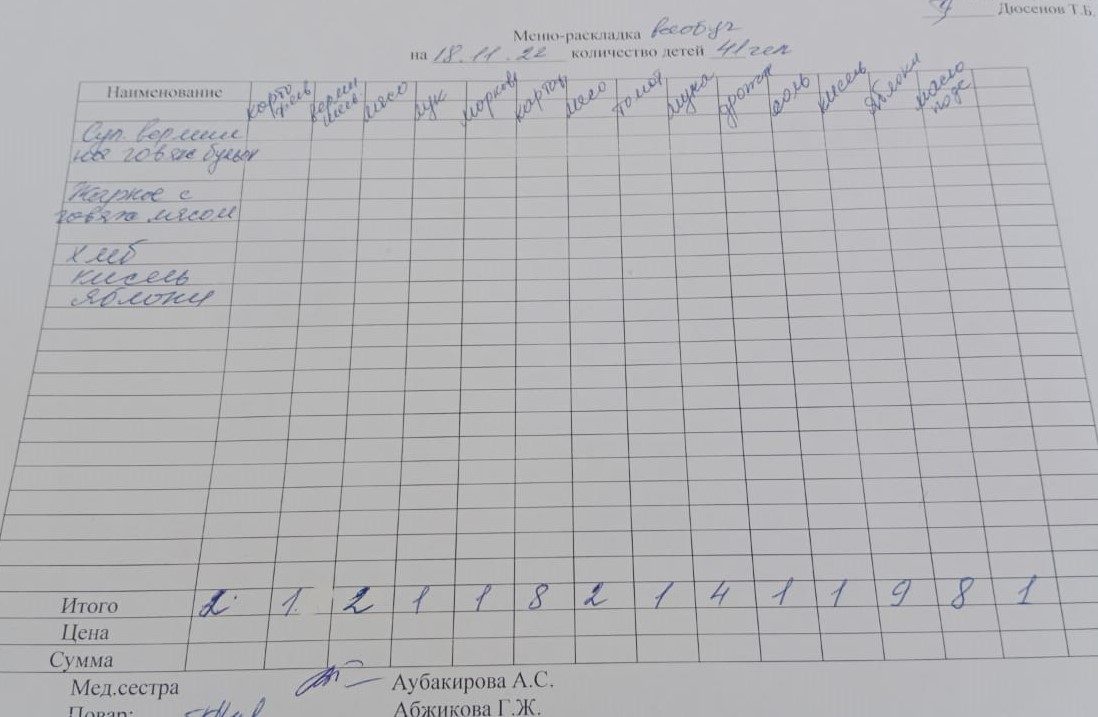 Дюсенов Т.Б.
Меню-раскладка всеобуч
на 18.11.22 количество детей 41 чел
Наименование карто фель верми шель мясо лук морковь картоф мясо томат мука дрожж соль кисель яблоки масло подс
Суп вермиш
на говяж бульон
Жаркое с
говяж мясом
хлеб
кисель
яблоки
Итого 2 1 2 1 1 8 2 1 4 1 1 9 8 1
Цена
Сумма
Мед.сестра Аубакирова А.С.
Повар: Абжикова Г.Ж.